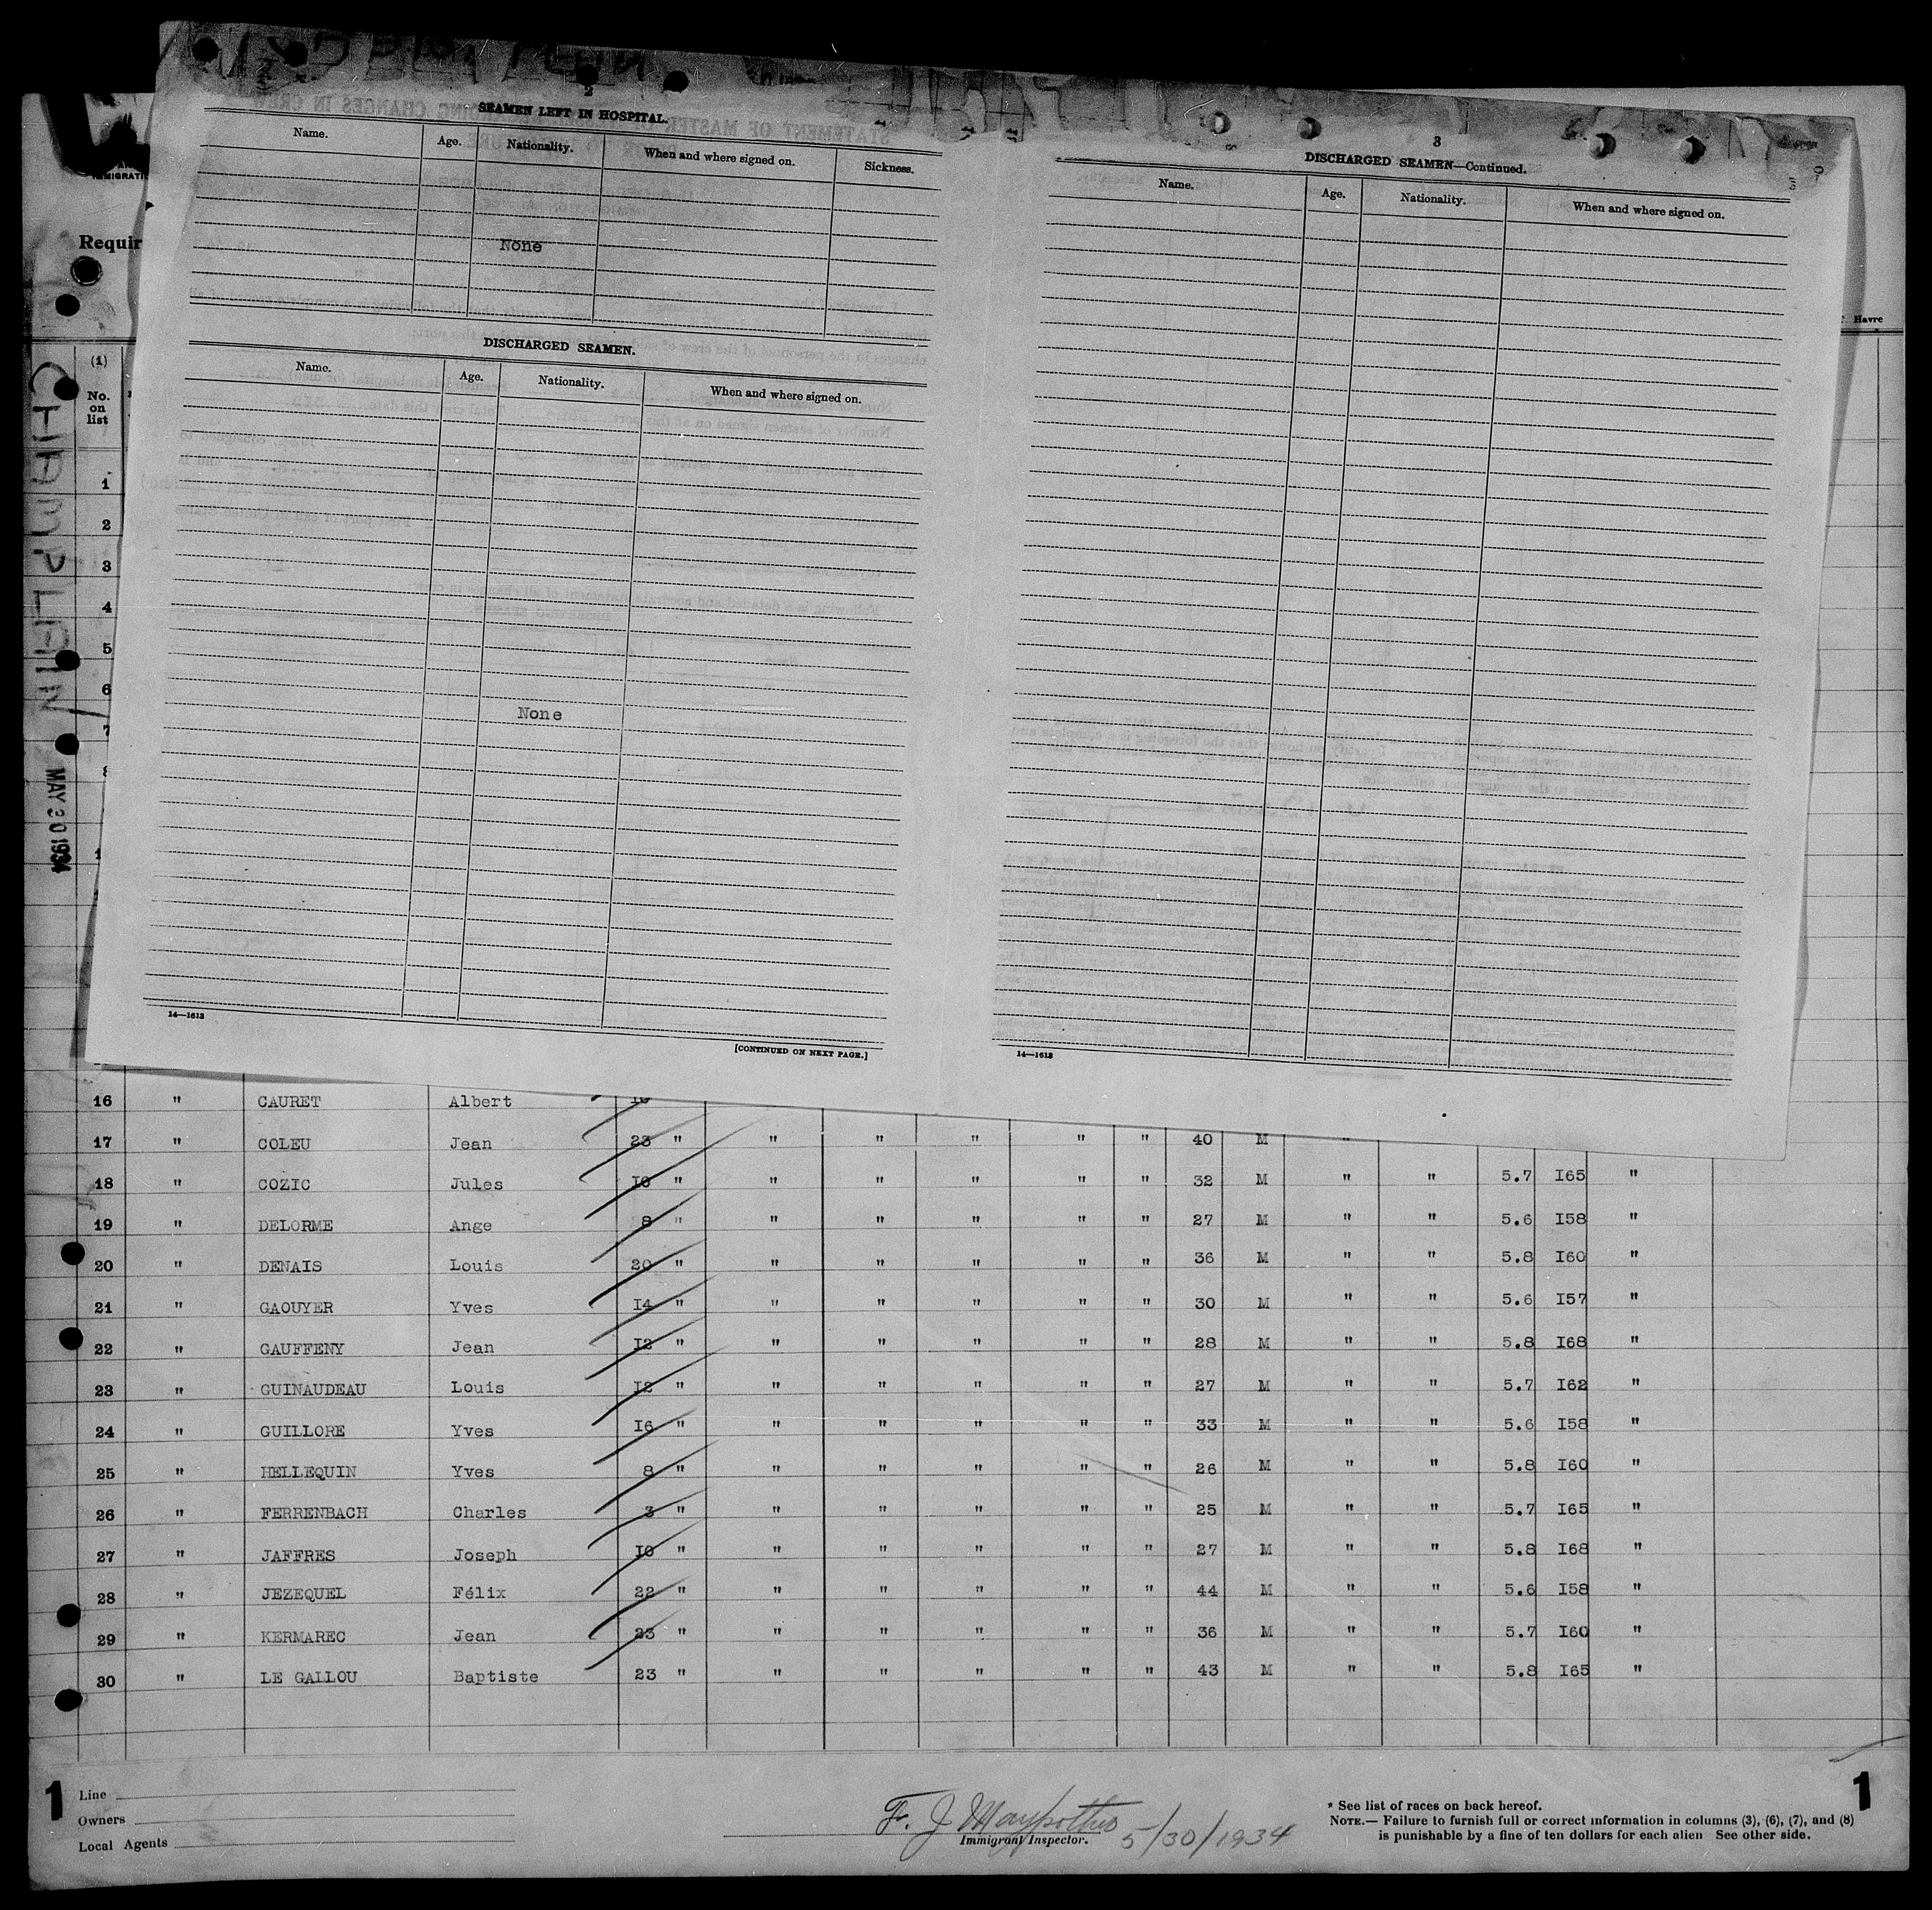 2
SEAMEN LEFT IN HOSPITAL.
Name. Age. Nationality. When and where signed on. Sickness.
None
DISCHARGED SEAMEN.
Name. Age. Nationality. When and where signed on.
None
14—1613
[CONTINUED ON NEXT PAGE.]
3
DISCHARGED SEAMEN—Continued.
Name. Age. Nationality. When and where signed on.
14—1613
Requir
Havre
(1)
No. on list
CHAMPLAIN
MAY 30 1934
1
2
3
4
5
6
7
16 " CAURET Albert
17 " COLEU Jean 23 " " " " " " 40 M "
18 " COZIC Jules I0 " " " " " " 32 M " " 5.7 I65 "
19 " DELORME Ange 8 " " " " " " 27 M " " 5.6 I58 "
20 " DENAIS Louis 20 " " " " " " 36 M " " 5.8 I60 "
21 " GAOUYER Yves I4 " " " " " " 30 M " " 5.6 I57 "
22 " GAUFFENY Jean I2 " " " " " " 28 M " " 5.8 I68 "
23 " GUINAUDEAU Louis I2 " " " " " " 27 M " " 5.7 I62 "
24 " GUILLORE Yves I6 " " " " " " 33 M " " 5.6 I58 "
25 " HELLEQUIN Yves 8 " " " " " " 26 M " " 5.8 I60 "
26 " FERRENBACH Charles 3 " " " " " " 25 M " " 5.7 I65 "
27 " JAFFRES Joseph I0 " " " " " " 27 M " " 5.8 I68 "
28 " JEZEQUEL Félix 22 " " " " " " 44 M " " 5.6 I58 "
29 " KERMAREC Jean 23 " " " " " " 36 M " " 5.7 I60 "
30 " LE GALLOU Baptiste 23 " " " " " " 43 M " " 5.8 I65 "
1
Line
Owners
Local Agents
F. J.
Immigrant Inspector.
5/30/1934
* See list of races on back hereof.
NOTE.— Failure to furnish full or correct information in columns (3), (6), (7), and (8)
is punishable by a fine of ten dollars for each alien See other side.
1